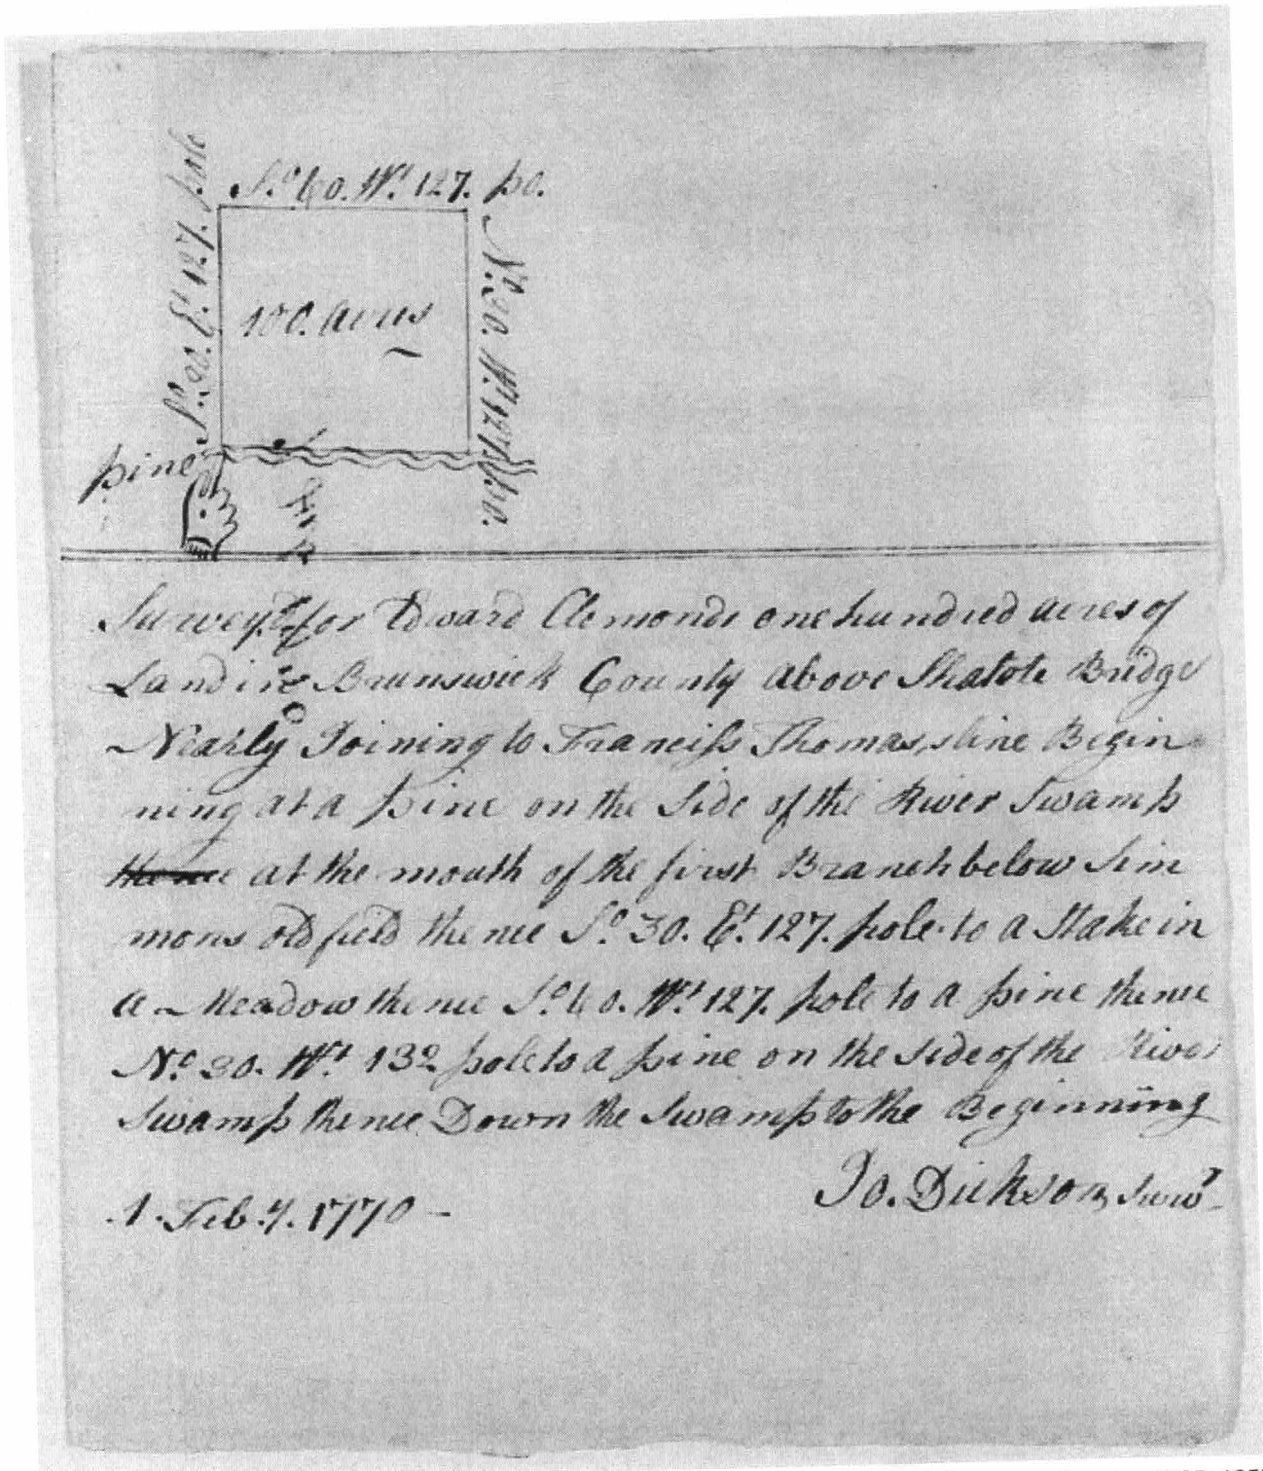 So. 60. Wt. 127. po.
So. 30. Et. 127. pole
100. acres
No. 30. Wt. 127 po.
pine
Survey'd for Edward Clemonds one hundred acres of
Land in Brunswick County above Shalote Bridge
Nearly Joining to Franciss Thomas,s line Begin
ning at a pine on the Side of the River Swamp
thence at the mouth of the first Branch below Sim
mons old field thence So. 30. Et. 127. pole to a Stake in
a Meadow thence So. 60. Wt. 127. pole to a pine thence
No. 30. Wt. 132 pole to a pine on the side of the River
Swamp thence Down the Swamp to the Beginning
Jo. Dickson, Survr
1. Feb.y. 1770 -